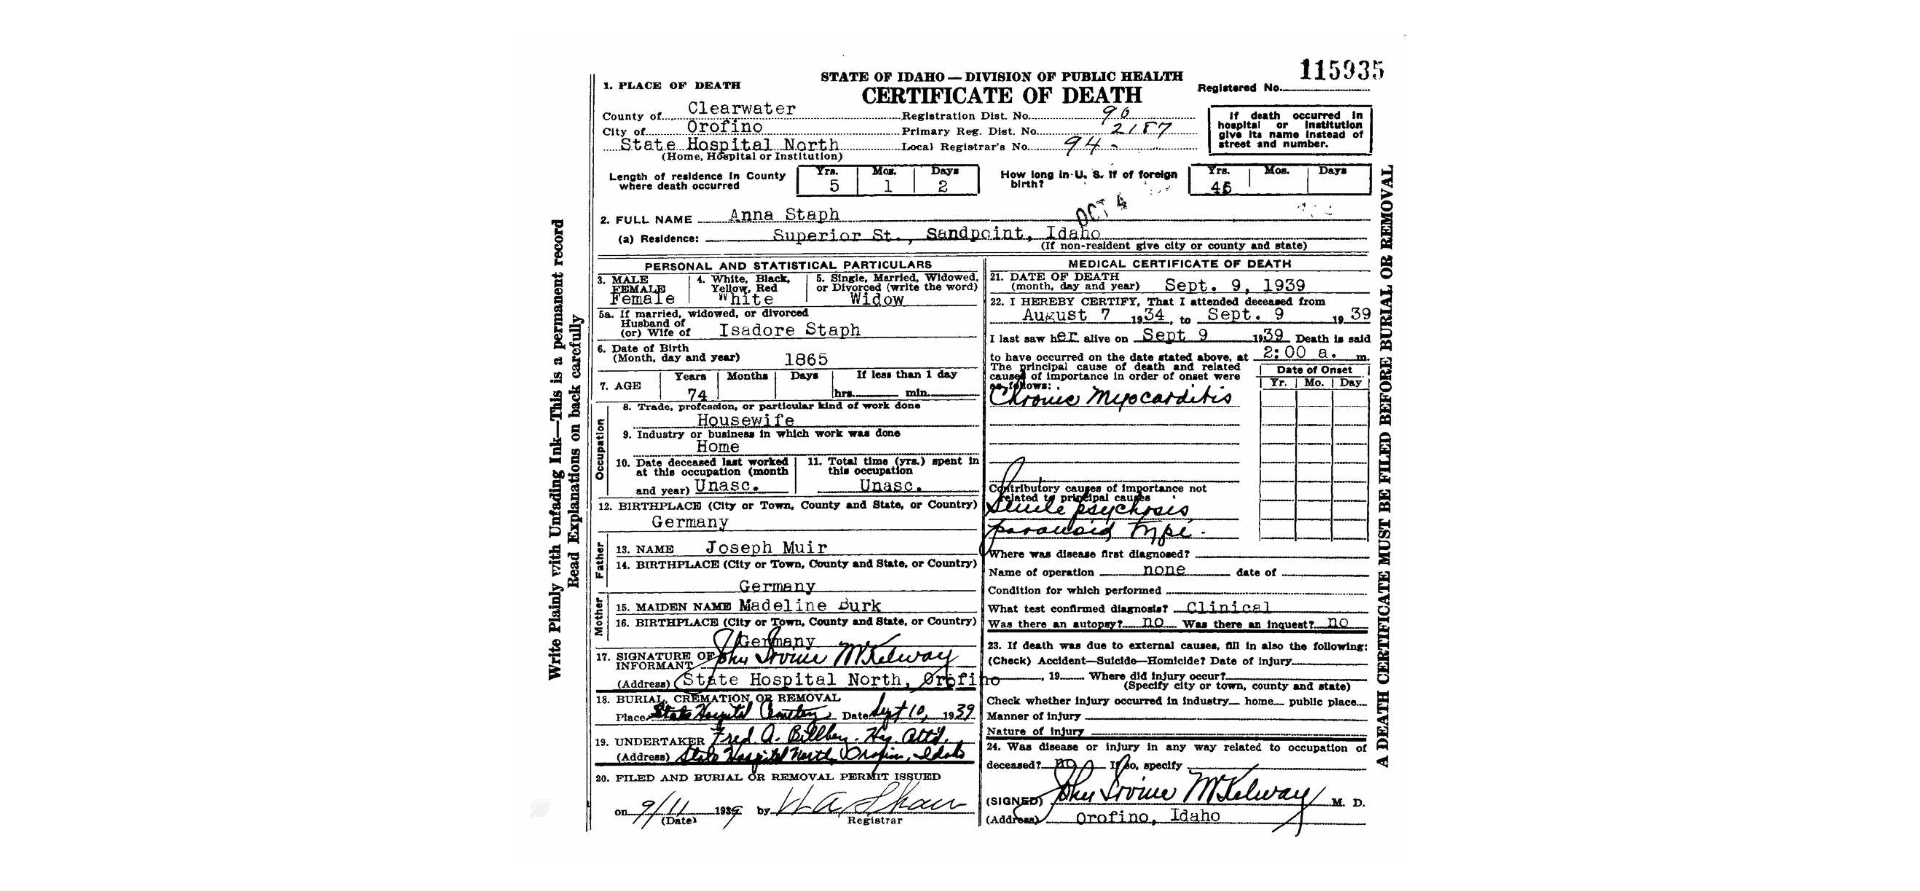 115935
STATE OF IDAHO — DIVISION OF PUBLIC HEALTH
CERTIFICATE OF DEATH
Registered No.
1. PLACE OF DEATH
County of Clearwater
City of Orofino
State Hospital North
(Home, Hospital or Institution)
Registration Dist. No. 96
Primary Reg. Dist. No. 2187
Local Registrar's No. 94
If death occurred in
hospital or institution
give its name instead of
street and number.
Length of residence in County
where death occurred
Yrs. Mos. Days
5 1 2
How long in U. S. if of foreign
birth?
Yrs. Mos. Days
46
OCT 4
2. FULL NAME Anna Staph
(a) Residence: Superior St., Sandpoint, Idaho
(If non-resident give city or county and state)
PERSONAL AND STATISTICAL PARTICULARS
3. MALE
FEMALE
Female
4. White, Black,
Yellow, Red
White
5. Single, Married, Widowed,
or Divorced (write the word)
Widow
5a. If married, widowed, or divorced
Husband of
(or) Wife of Isadore Staph
6. Date of Birth
(Month, day and year) 1865
7. AGE Years Months Days If less than 1 day
74 hrs. min.
Occupation
8. Trade, profession, or particular kind of work done
Housewife
9. Industry or business in which work was done
Home
10. Date deceased last worked
at this occupation (month
and year) Unasc.
11. Total time (yrs.) spent in
this occupation
Unasc.
12. BIRTHPLACE (City or Town, County and State, or Country)
Germany
Father
13. NAME Joseph Muir
14. BIRTHPLACE (City or Town, County and State, or Country)
Germany
Mother
15. MAIDEN NAME Madeline Burk
16. BIRTHPLACE (City or Town, County and State, or Country)
Germany
17. SIGNATURE OF
INFORMANT John Irvine McKelway
(Address) State Hospital North, Orofino
18. BURIAL, CREMATION OR REMOVAL
Place State Hospital Cemetery Date Sept 10, 1939
19. UNDERTAKER Fred A. Billberg Hy. Attd.
(Address) State Hospital North, Orofino, Idaho
20. FILED AND BURIAL OR REMOVAL PERMIT ISSUED
on 9/11 1939 by W A Shaw
(Date) Registrar
MEDICAL CERTIFICATE OF DEATH
21. DATE OF DEATH
(month, day and year) Sept. 9, 1939
22. I HEREBY CERTIFY, That I attended deceased from
August 7 1934, to Sept. 9 1939
I last saw her alive on Sept 9 1939 Death is said
to have occurred on the date stated above, at 2:00 a. m.
The principal cause of death and related
causes of importance in order of onset were
as follows:
Date of Onset
Yr. Mo. Day
Chronic Myocarditis
Contributory causes of importance not
related to principal cause
Senile psychosis
paranoid type.
Where was disease first diagnosed?
Name of operation none date of
Condition for which performed
What test confirmed diagnosis? Clinical
Was there an autopsy? no Was there an inquest? no
23. If death was due to external causes, fill in also the following:
(Check) Accident—Suicide—Homicide? Date of injury
, 19 Where did injury occur?
(Specify city or town, county and state)
Check whether injury occurred in industry home public place
Manner of injury
Nature of injury
24. Was disease or injury in any way related to occupation of
deceased? no If so, specify
(SIGNED) John Irvine McKelway M. D.
(Address) Orofino, Idaho
Write Plainly with Unfading Ink—This is a permanent record
Read Explanations on back carefully
A DEATH CERTIFICATE MUST BE FILED BEFORE BURIAL OR REMOVAL